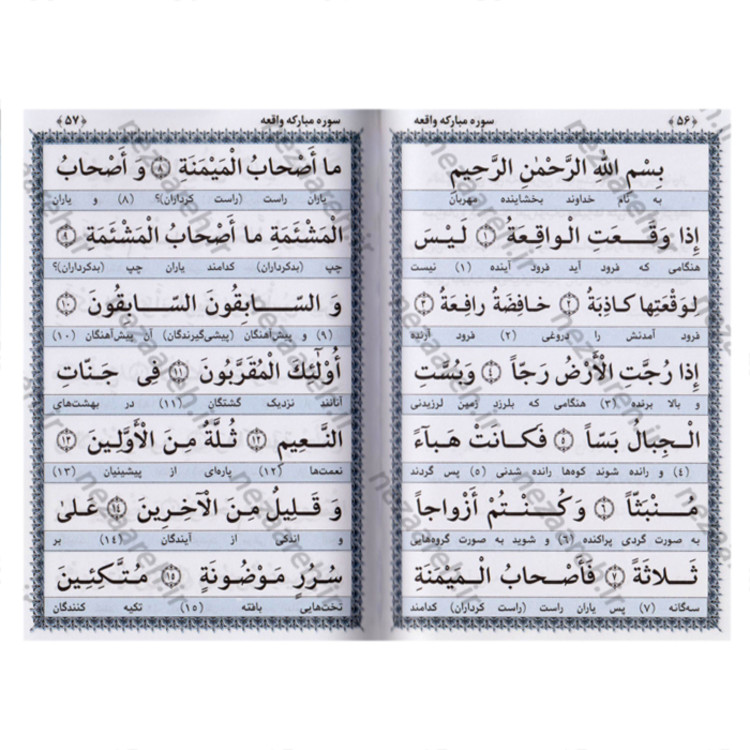 ﴿۵۶﴾ سوره مبارکه واقعه
بِسْمِ اللهِ الرَّحْمٰنِ الرَّحیمِ
به نام خداوند بخشاینده مهربان
إِذا وَقَعَتِ الْواقِعَةُ ﴿۱﴾ لَیْسَ
هنگامی که فرود آید فرود آینده (۱) نیست
لِوَقْعَتِها کاذِبَةٌ ﴿۲﴾ خافِضَةٌ رافِعَةٌ ﴿۳﴾
فرود آمدنش را دروغی (۲) فرود آرنده
إِذا رُجَّتِ الْأَرْضُ رَجّاً ﴿۴﴾ وَبُسَّتِ
و بالا برنده (۳) هنگامی که بلرزد زمین لرزیدنی
الْجِبالُ بَسّاً ﴿۵﴾ فَکانَتْ هَبآءً
(۴) و رانده شوند کوه‌ها رانده شدنی (۵) پس گردند
مُنْبَثّاً ﴿۶﴾ وَکُنْتُمْ أَزْواجاً
به صورت گردی پراکنده (۶) و شوید به صورت گروه‌هایی
ثَلاثَةً ﴿۷﴾ فَأَصْحابُ الْمَیْمَنَةِ
سه‌گانه (۷) پس یاران راست (راست کرداران) کدامند
سوره مبارکه واقعه ﴿۵۷﴾
ما أَصْحابُ الْمَیْمَنَةِ ﴿۸﴾ وَ أَصْحابُ
یاران راست (راست کرداران)؟ (۸) و یاران
الْمَشْئَمَةِ ما أَصْحابُ الْمَشْئَمَةِ ﴿۹﴾
چپ (بدکرداران) کدامند یاران چپ (بدکرداران)؟
وَ السّابِقُونَ السّابِقُونَ ﴿۱۰﴾
(۹) و پیش‌آهنگان (پیشی‌گیرندگان) آن پیش‌آهنگان (۱۰)
أُولٰٓئِكَ الْمُقَرَّبُونَ ﴿۱۱﴾ فِی جَنّاتِ
آنانند نزدیک گشتگان (۱۱) در بهشت‌های
النَّعیمِ ﴿۱۲﴾ ثُلَّةٌ مِنَ الْأَوَّلینَ ﴿۱۳﴾
نعمت‌ها (۱۲) پاره‌ای از پیشینیان (۱۳)
وَ قَلیلٌ مِنَ الْآخِرینَ ﴿۱۴﴾ عَلیٰ
و اندکی از آیندگان (۱۴) بر
سُرُرٍ مَوْضُونَةٍ ﴿۱۵﴾ مُتَّکِئینَ
تخت‌هایی بافته (۱۵) تکیه کنندگان
nezaareh.ir